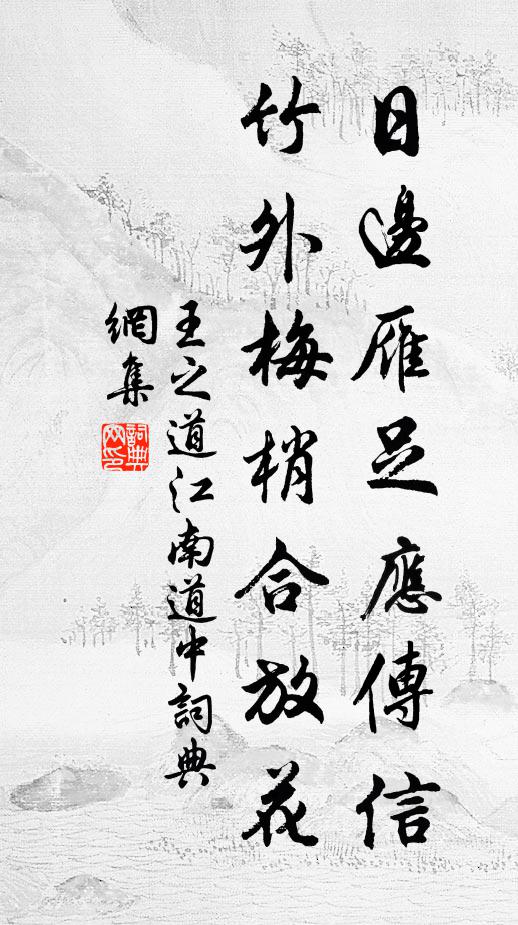 日邊雁足應傳信
竹外梅梢合放花
王之道江南道中詞典
網集
詞典網印